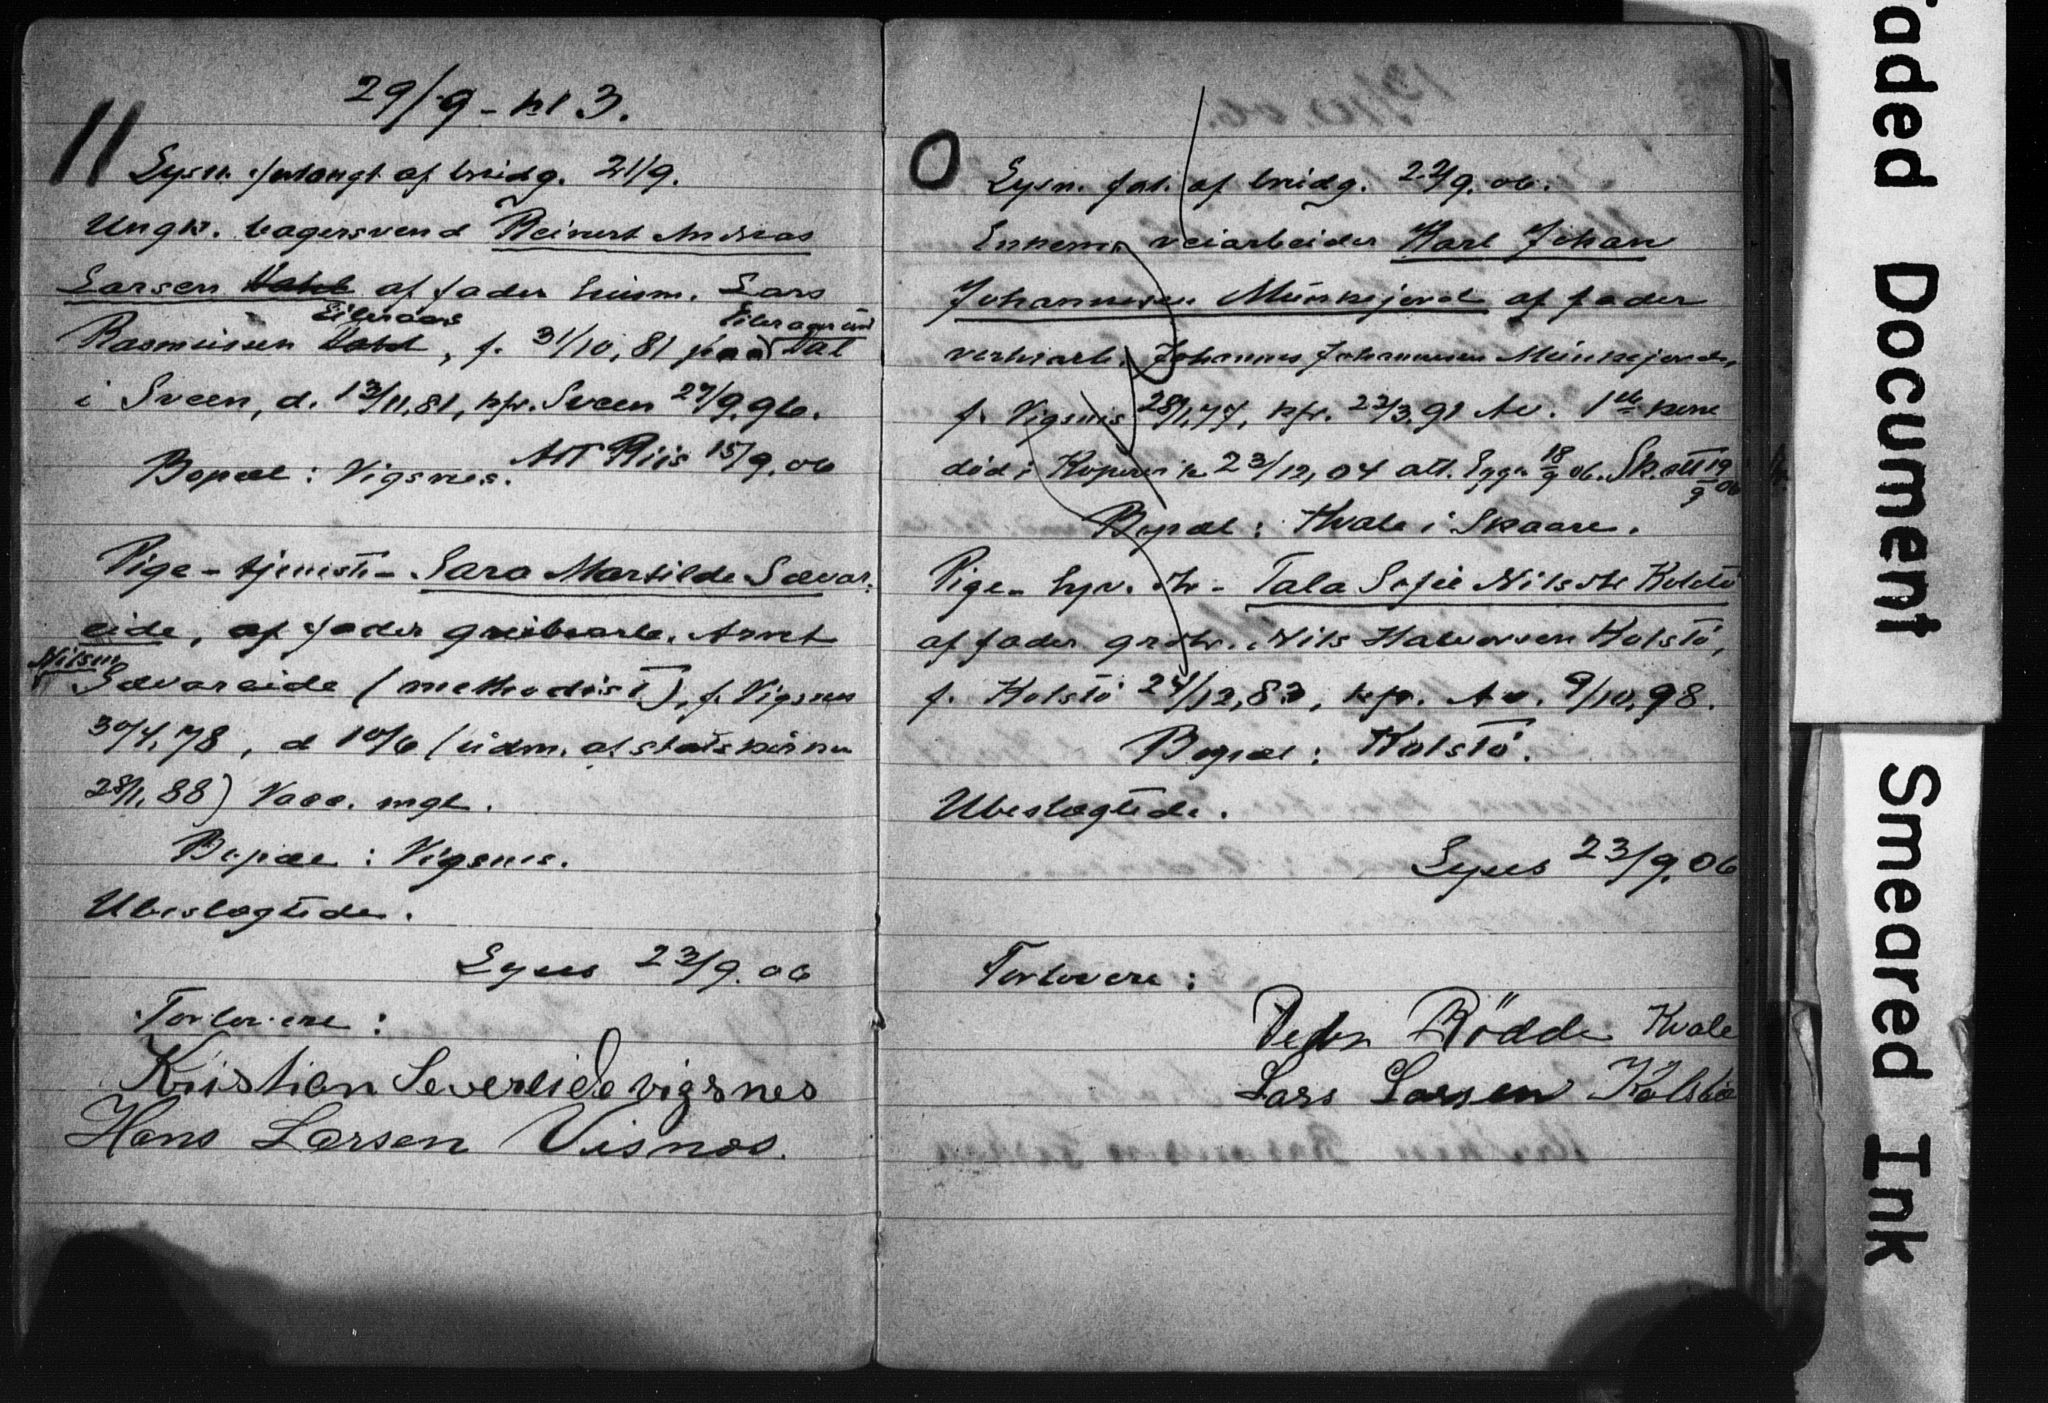 29/9 - kl 3.
11
Lysn. forlangt af brudg. 21/9.
Ungk. bagersvend Reinert Andreas
Larsen af fader husm. Lars
Rasmussen, f. 31/10, 81 paa Dal
i Sveen, d. 13/11, 81, kfr. Sveen 27/9, 96.
Bopæl: Vigsnes. Att Riis 15/9. 06
Pige - tjeneste - Sara Martilde Sævar-
eide, af fader grubearb. Arnt
Nilsen
Sævareide (methodist), f. Vigsnes
30/4, 78, d 10/6 (udm. af statskirken
28/1, 88) Vacc. mgl.
Bopæl: Vigsnes.
Ubeslægtede.
Lyses 23/9. 06
Forlovere:
Kristian Severeide vigsnes
Hans Larsen Visnes.
0
Lysn. forl. af brudg. 22/9. 06.
Enkem. veiarbeider Karl Johan
Johannesen Munkejord af fader
verkarb. Johannes Johannesen Munkejord,
f. Vigsnes 28/1, 77, kfr. 22/3. 91 Av. 1ste kone
død i Kopervik 23/12, 04 att. 18/9 06. Sk. att 19/9 06
Bopæl: Kvale i Skaare.
Pige - Tala Sofie Nilsdtr Kolstö
af fader grdbr. Nils Halvorsen Kolstö,
f. Kolstö 24/12, 83, kfr. Av. 9/10, 98.
Bopæl: Kolstö.
Ubeslægtede.
Lyses 23/9. 06
Forlovere:
Peder Rödde Kvale
Lars Larsen Kolstø
Faded Document
Smeared Ink